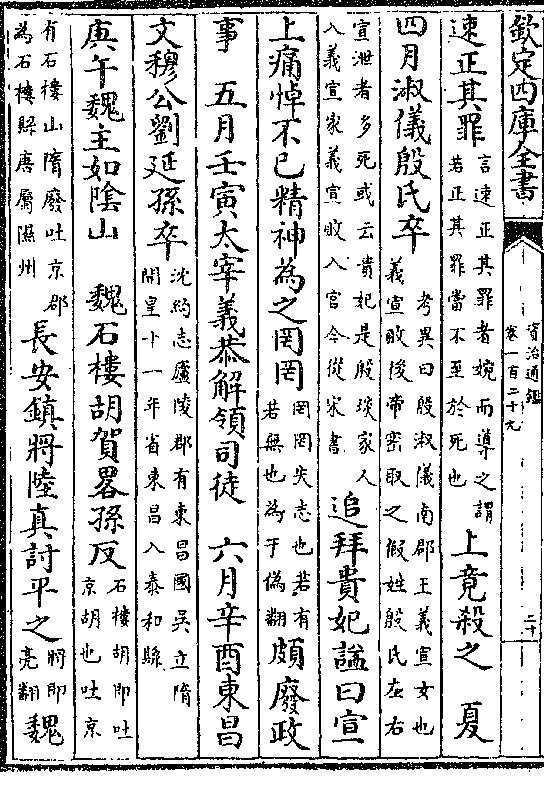 欽定四庫全書
資治通鑑
卷一百二十九
二十
速正其罪言速正其罪者婉而導之謂若正其罪當不至於死也上竟殺之　夏
四月淑儀殷氏卒考異曰殷淑儀南郡王義宣女也義宣敗後帝密取之假姓殷氏左右
宣泄者多死或云貴妃是殷琰家人入義宣家義宣敗入宮今從宋書追拜貴妃諡曰宣
上痛悼不已精神為之罔罔罔罔失志也若有若無也為于偽翻頗廢政
事　五月壬寅太宰義恭解領司徒　六月辛酉東昌
文穆公劉延孫卒沈約志廬陵郡有東昌國吳立隋開皇十一年省東昌入泰和縣
庚午魏主如隂山　魏石樓胡賀畧孫反石樓胡即吐京胡也吐京
有石樓山隋廢吐京郡為石樓縣唐屬隰州長安鎮將陸真討平之將即亮翻魏